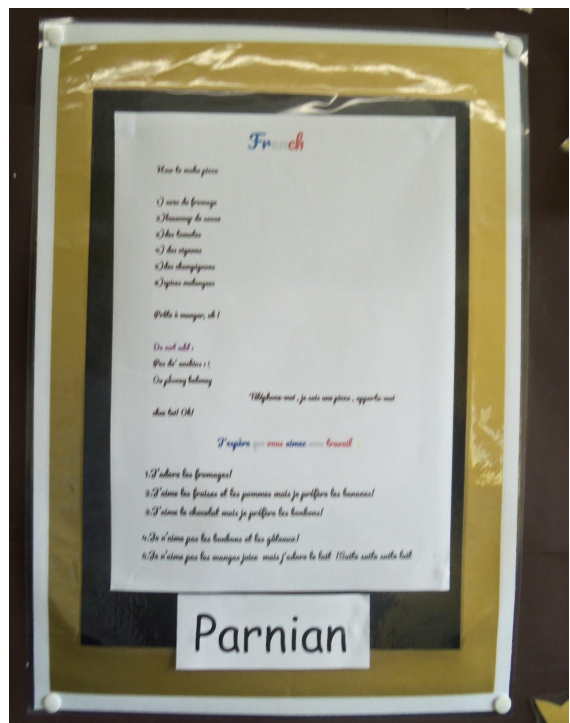 French
How to make pizza
1) avec du fromage
2) beaucoup de sauce
3) des tomates
4) des oignons
5) des champignons
6) epices melangees
Prête à manger, ok !
Do not add :
Pas de' anchies : (
Ou phoney baloney
Téléphone-moi , je suis une pizza , apporte-moi
chez toi! Ok!
J'espère que vous aimez mon travail
1.J'adore les fromages!
2.J'aime les fraises et les pommes mais je préfère les bananes!
3.J'aime le chocolat mais je préfère les bonbons!
4.Je n'aime pas les bonbons et les gâteaux!
5.Je n'aime pas les mangos juice mais j'adore le lait !Suite suite suite lait
Parnian